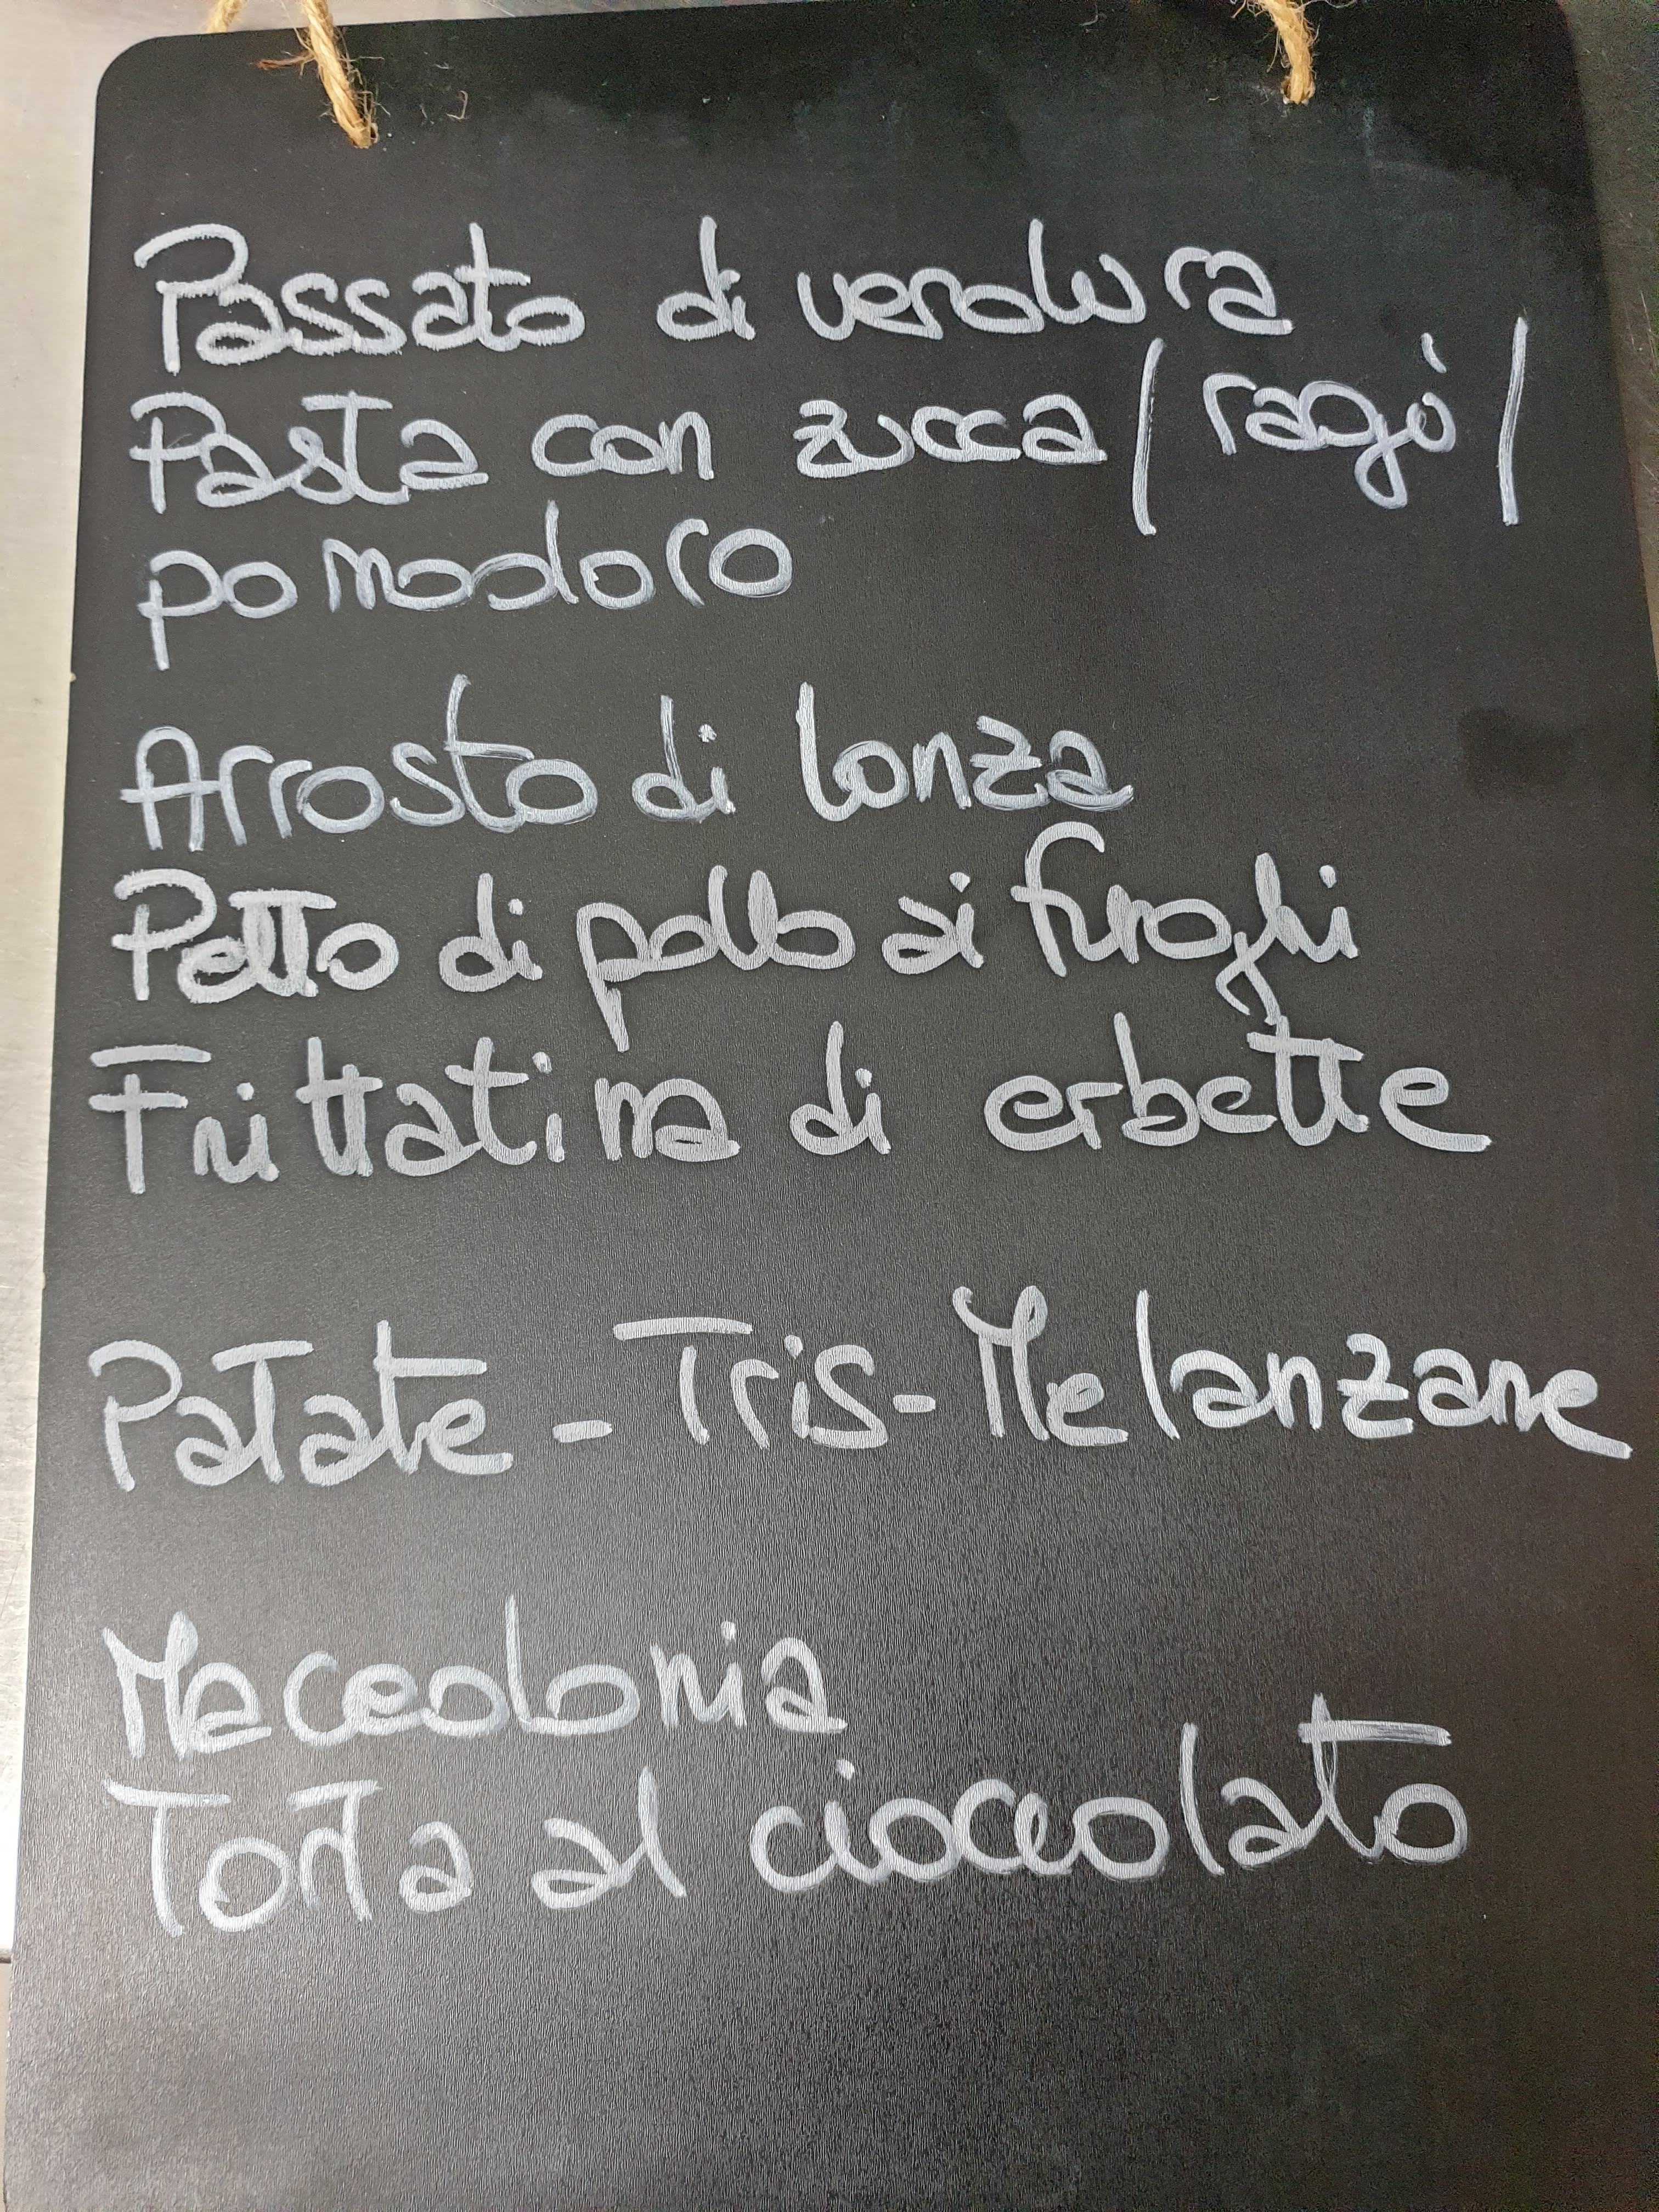 Passato di verdura
Pasta con zucca / ragù /
pomodoro
Arrosto di lonza
Petto di pollo ai funghi
Frittatina di erbette
Patate - Tris - Melanzane
Macedonia
Torta al cioccolato